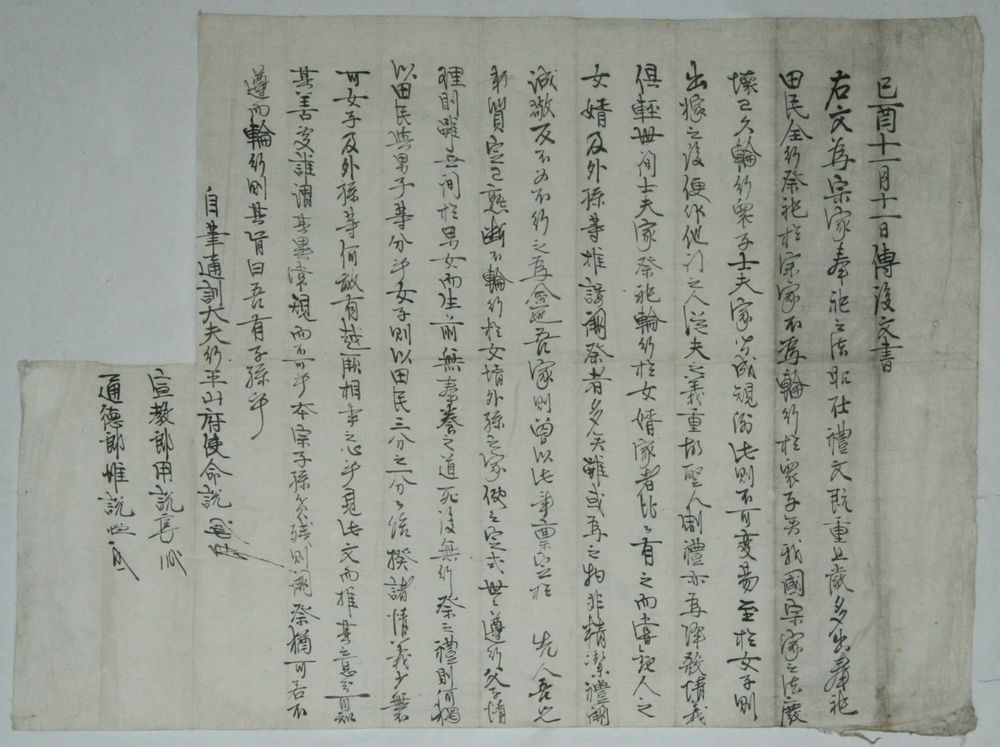 己酉十一月十一日傳後文書
右文爲宗家奉祀之法昭在禮文既重且嚴多出奉祀
田民全行祭祀於宗家不爲輪行於衆子矣我國宗家之法廢
壞已久輪行衆子士夫家皆成規例此則不可變易至於女子則
出嫁之後便作他門之人從夫之義重故聖人制禮亦爲降殺情義
俱輕世間士夫家祭祀輪行於女婿家者比比有之而嘗觀人之
女婿及外孫等推諉闕祭者多矣雖或爲之物非精潔禮闕
誠敬反不如不行之爲愈也吾家則曾以此事稟定於 先人吾兄
弟質定已熟斷不輪行於女婿外孫之家使之定式世世遵行父子情
理則雖無間於男女而生前無奉養之道死後無行祭之禮則何獨
以田民與男子等分乎女子則以田民三分之一分給揆諸情義少無不
可女子及外孫等何敢有越厭相爭之心乎見此文而推其意則可知
其善處誰謂其異常規而不可乎本宗子孫貧殘則闕祭猶可若不
遵而輪行則其肯曰吾有子孫乎
自筆通訓大夫行平山府使命說
宣教郎用說
通德郎惟說